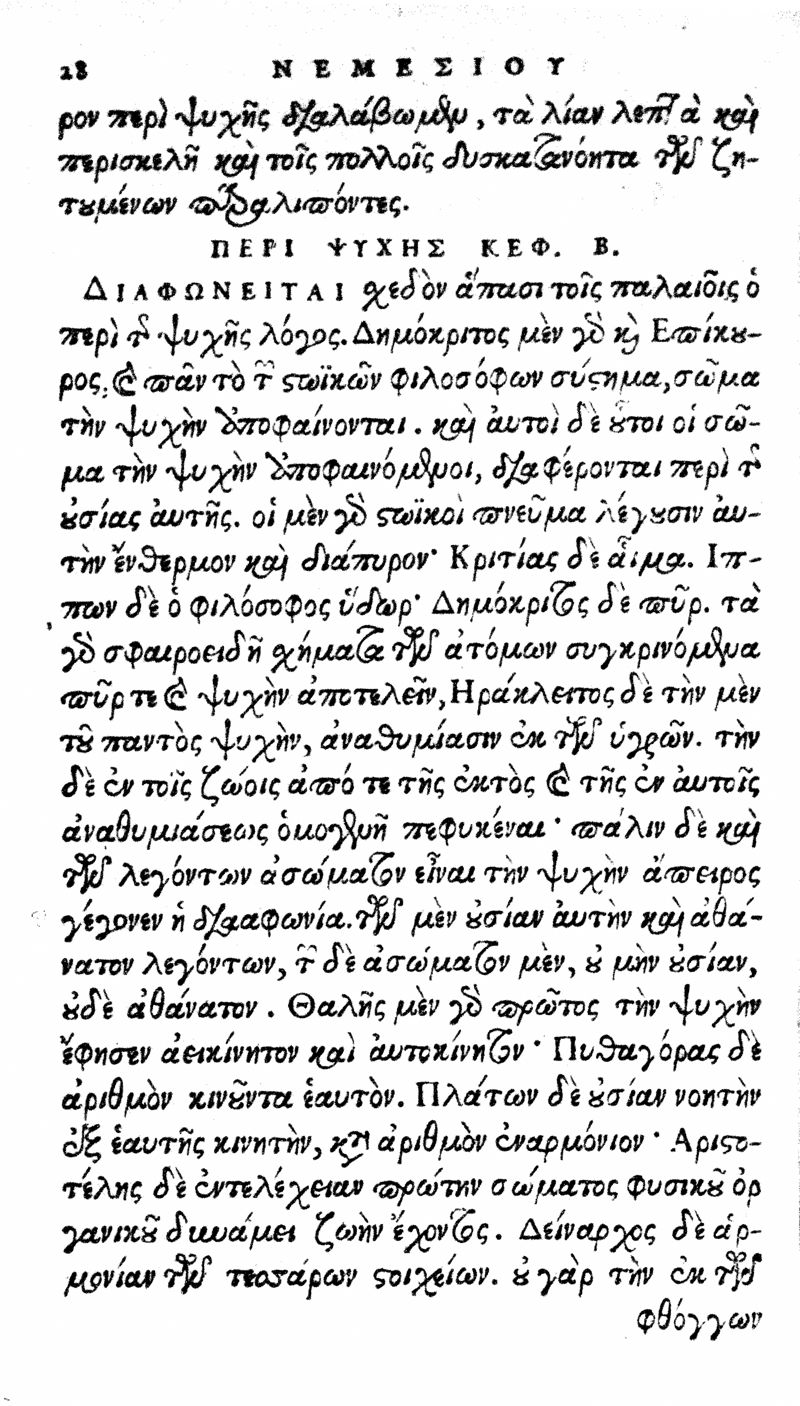 28 ΝΕΜΕΣΙΟΥ
ρον περὶ ψυχῆς διαλάβωμεν, τὰ λίαν λεπτὰ καὶ
περισκελῆ καὶ τοῖς πολλοῖς δυσκατανόητα τῶν ζη-
τουμένων παραλιπόντες.
ΠΕΡΙ ΨΥΧΗΣ ΚΕΦ. Β.
ΔΙΑΦΩΝΕΙΤΑΙ σχεδὸν ἅπασι τοῖς παλαιοῖς ὁ
περὶ τῆς ψυχῆς λόγος. Δημόκριτος μὲν γὰρ καὶ Επίκου-
ρος, καὶ πᾶν τὸ τῶν στωϊκῶν φιλοσόφων σύστημα, σῶμα
τὴν ψυχὴν ἀποφαίνονται. καὶ ἀυτοὶ δὲ οὗτοι οἱ σῶ-
μα τὴν ψυχὴν ἀποφαινόμενοι, διαφέρονται περὶ τῆς
οὐσίας ἀυτῆς. οἱ μὲν γὰρ στωϊκοὶ πνεῦμα λέγουσιν ἀυ-
τὴν ἔνθερμον καὶ διάπυρον· Κριτίας δὲ αἷμα. Ιπ-
πων δὲ ὁ φιλόσοφος ὕδωρ· Δημόκριτος δὲ πῦρ. τὰ
γὰρ σφαιροειδῆ σχήματα τῶν ἀτόμων συγκρινόμενα
πῦρ τε καὶ ψυχὴν ἀποτελεῖν, Ηράκλειτος δὲ τὴν μὲν
τοῦ παντὸς ψυχὴν, ἀναθυμίασιν ἐκ τῶν ὑγρῶν. τὴν
δὲ ἐν τοῖς ζώοις ἀπό τε τῆς ἐκτὸς καὶ τῆς ἐν ἀυτοῖς
ἀναθυμιάσεως ὁμογενῆ πεφυκέναι· πάλιν δὲ καὶ
τῶν λεγόντων ἀσώματον εἶναι τὴν ψυχὴν ἄπειρος
γέγονεν ἡ διααφωνία. τῶν μὲν οὐσίαν ἀυτὴν καὶ ἀθά-
νατον λεγόντων, τῶν δὲ ἀσώματον μὲν, οὐ μὴν οὐσίαν,
οὐδὲ ἀθάνατον. Θαλῆς μὲν γὰρ πρῶτος τὴν ψυχὴν
ἔφησεν ἀεικίνητον καὶ ἀυτοκίνητον· Πυθαγόρας δὲ
ἀριθμὸν κινοῦντα ἑαυτὸν. Πλάτων δὲ οὐσίαν νοητὴν
ἐξ ἑαυτῆς κινητὴν, κατὰ ἀριθμὸν ἐναρμόνιον· Αριστο-
τέλης δὲ ἐντελέχειαν πρώτην σώματος φυσικοῦ ὀρ
γανικοῦ δυνάμει ζωὴν ἔχοντος. Δείναρχος δὲ ἁρ-
μονίαν τῶν τεσσάρων στοιχείων. οὐ γὰρ τὴν ἐκ τῶν
φθόγγων